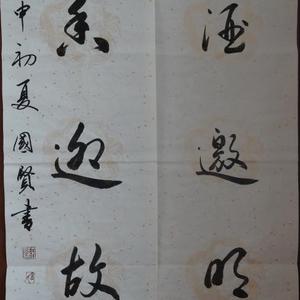 酒邀明
香迎故
申初夏國賢書